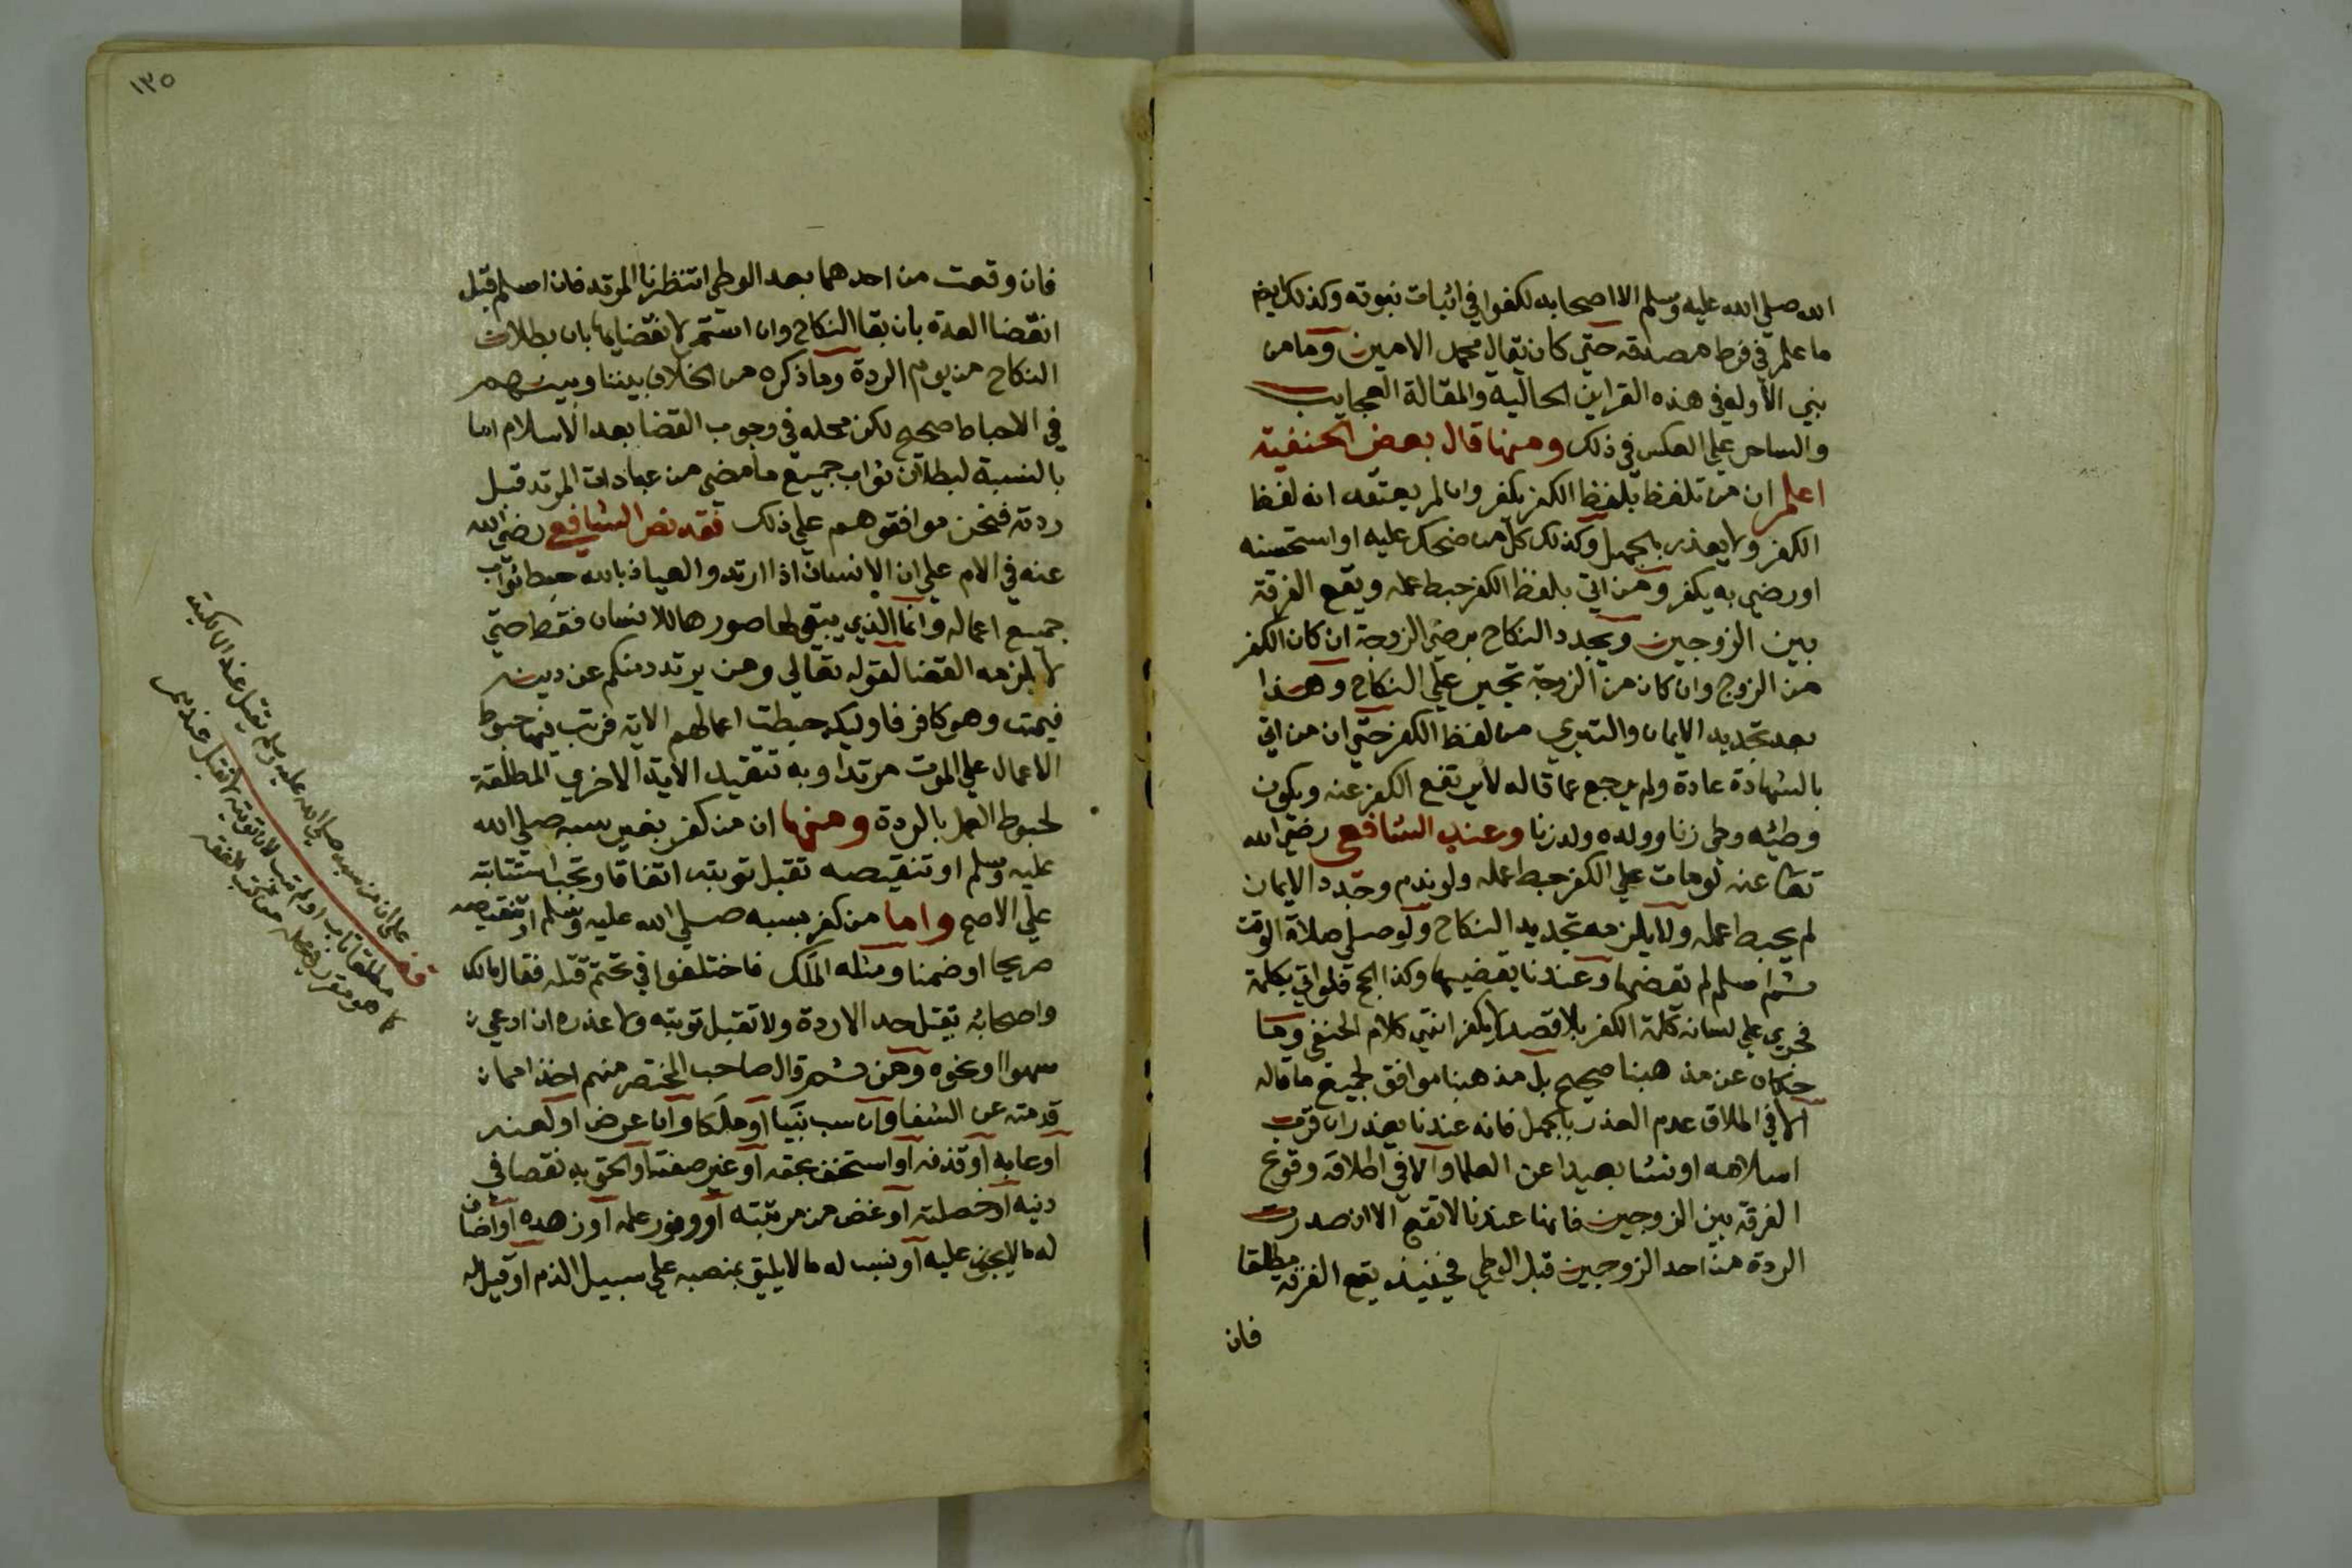 الله صلي الله عليه وسلم الا اصحابه لكفوا في اثبات نبوته وكذلك
ما علم في فرط صدقه حتي كان يقال محمد الامين وما من
نبي الا وله في هذه القراين الحالية والمقالة العجايب
والساحر علي العكس في ذلك ومنها قال بعض الحنفية
اعلم ان من تلفظ بلفظ الكفر يكفر وان لم يعتقد انه لفظ
الكفر ولا يعذر بالجهل وكذلك كل من ضحك عليه او استحسنه
او رضي به يكفر ومن اتي بلفظ الكفر حبط عمله ويقع الفرقة
بين الزوجين ويجدد النكاح برضي الزوجة ان كان الكفر
من الزوج وان كان من الزوجة تجبر علي النكاح وهذا
بعد تجديد الايمان والتبري من لفظ الكفر حتي ان من اتي
بالشهادة عادة ولم يرجع عما قاله لا يرتفع الكفر عنه ويكون
وطئه وطي زنا وولده ولد زنا وعند الشافعي رضي الله
تعا عنه لو مات علي الكفر حبط عمله ولو ندم وجدد الايمان
لم يحبط عمله ولا يلزمه تجديد النكاح ولو صلي صلاة الوقت
ثم اسلم لم يقضها وعندنا يقضيها وكذا الحج فلو اتي بكلمة
فجري علي لسانه كلمة الكفر بلا قصد لا يكفر انتهي كلام الحنفي وما
حكاه عن مذهبنا صحيح بل مذهبنا موافق لجميع ما قاله
الا في اطلاق عدم العذر بالجهل فانه عندنا يعذر ان قرب
اسلامه او نشا بعيدا عن العلما والا في اطلاقه وقوع
الفرقة بين الزوجين فانها عندنا لا تقع الا ان صدرت
الردة من احد الزوجين قبل الوطي فحينئذ يقع الفرقة مطلقا
فان
١٣٥
فان وقعت من احدهما بعد الوطي انتظرنا المرتد فان اسلم قبل
انقضا العدة بان بقا النكاح وان استمر لانقضايها بان بطلان
النكاح من يوم الردة وما ذكره من الخلاف بيننا وبينهم
في الاحباط صحيح لكن محله في وجوب القضا بعد الاسلام اما
بالنسبة لبطلان ثواب جميع ما مضي من عبادات المرتد قبل
ردته فنحن موافقوهم علي ذلك فقد نص الشافعي رضي الله
عنه في الام علي ان الانسان اذا ارتد والعياذ بالله حبط ثواب
جميع اعماله وانما الذي يبقي لها صورها للانسان فقط حتي
لا يلزمه القضا لقوله تعالي ومن يرتدد منكم عن دينه
فيمت وهو كافر فاوليك حبطت اعمالهم الاية فرتب فيها حبوط
الاعمال علي الموت مرتدا وبه تتقيد الاية الاخري المطلقة
لحبوط العمل بالردة ومنها ان من كفر بغير سبه صلي الله
عليه وسلم او تنقيصه تقبل توبته اتفاقا وتجب استتابته
علي الاصح واما من كفر بسبه صلي الله عليه وسلم او تنقيصه
صريحا او ضمنا ومثله الملك فاختلفوا في تحتم قتله فقال مالك
واصحابه يقتل حدا لا ردة ولا تقبل توبته ولا عذره ان ادعي
سهوا او نحوه ومن ثم قال صاحب المختصر منهم اخذا مما
قدمته عن الشفا وان سب نبيا او ملكا وان عرض او لعنه
او عابه او قذفه او استخف بحقه او غير صفته او الحق به نقصا في
دينه او خصلته او غض من مرتبته او وفور علمه او زهده او اضاف
له ما لا يجوز عليه او نسب له ما لا يليق بمنصبه علي سبيل الذم او قيل له
قف علي ان من سب صلي الله عليه وسلم يقتل عند المالكية
مطلقا تاب او لم يتب لان توبته لا تقبل عندهم
كما هو مقرر في محله من كتب الفقه